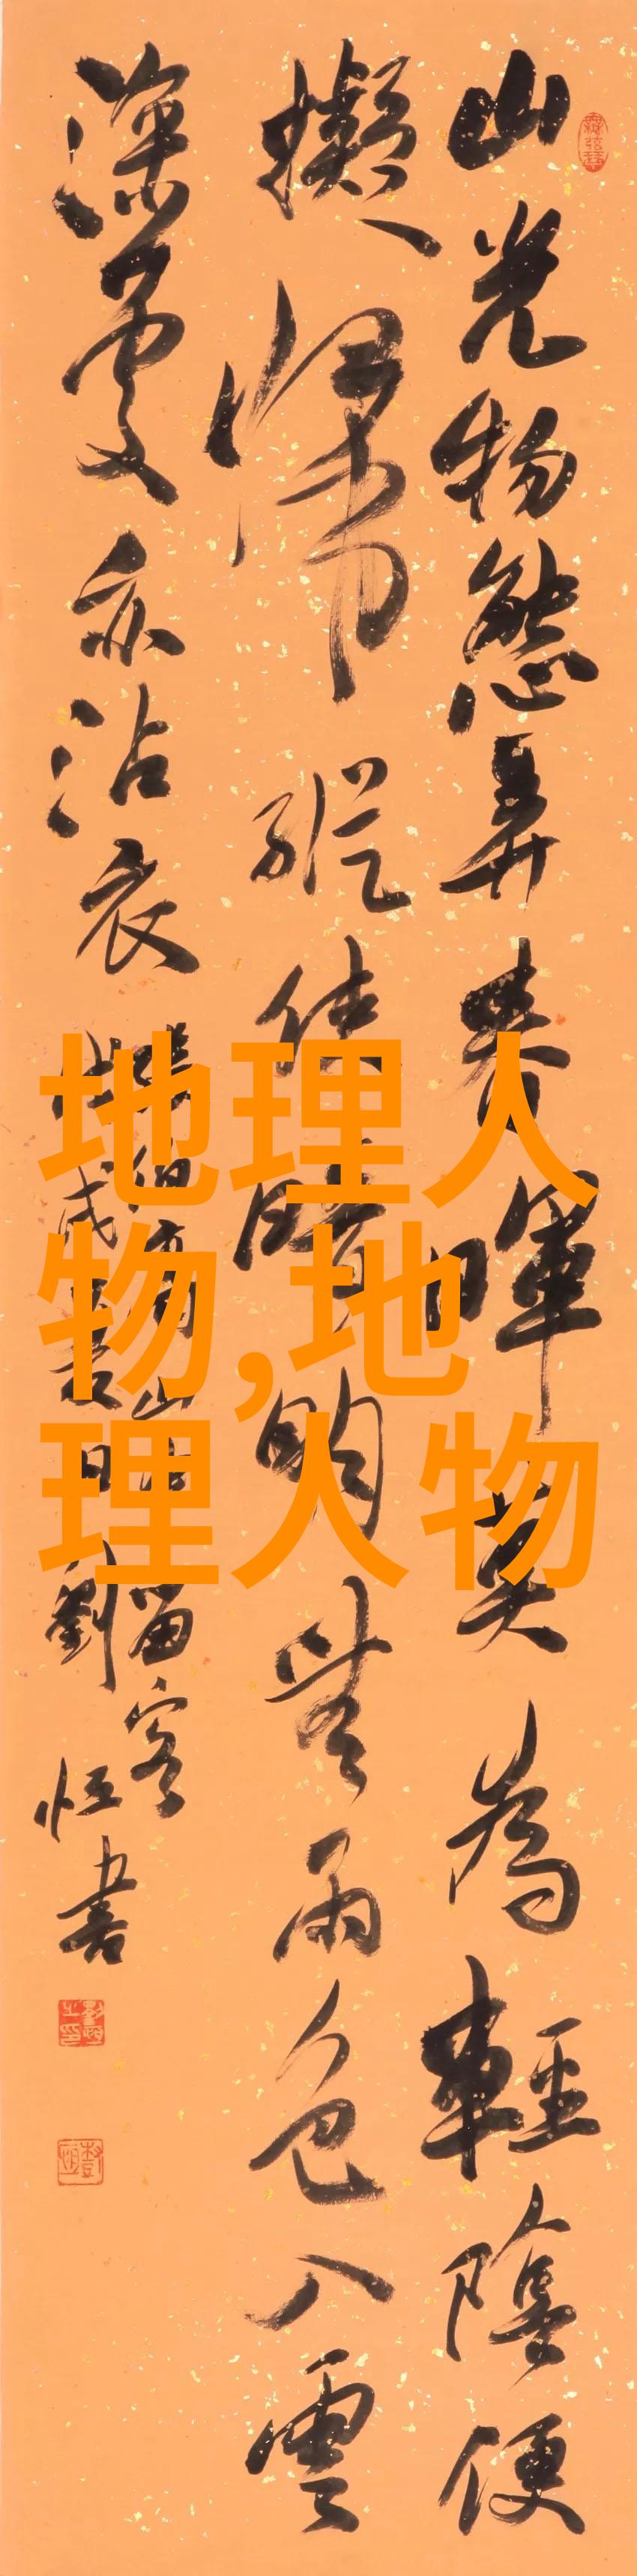 山光物態弄春暉莫為輕陰便
擬歸縱使晴明無雨色入雲
深處亦沾衣
伯高山中留客
劉恒書
地理人
物,地
理人物